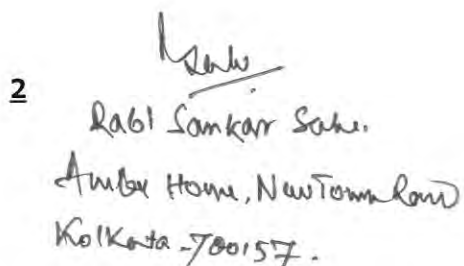 2
Rabi Sankar Saha.
Amber Home, New Town Road
Kolkata - 700157.